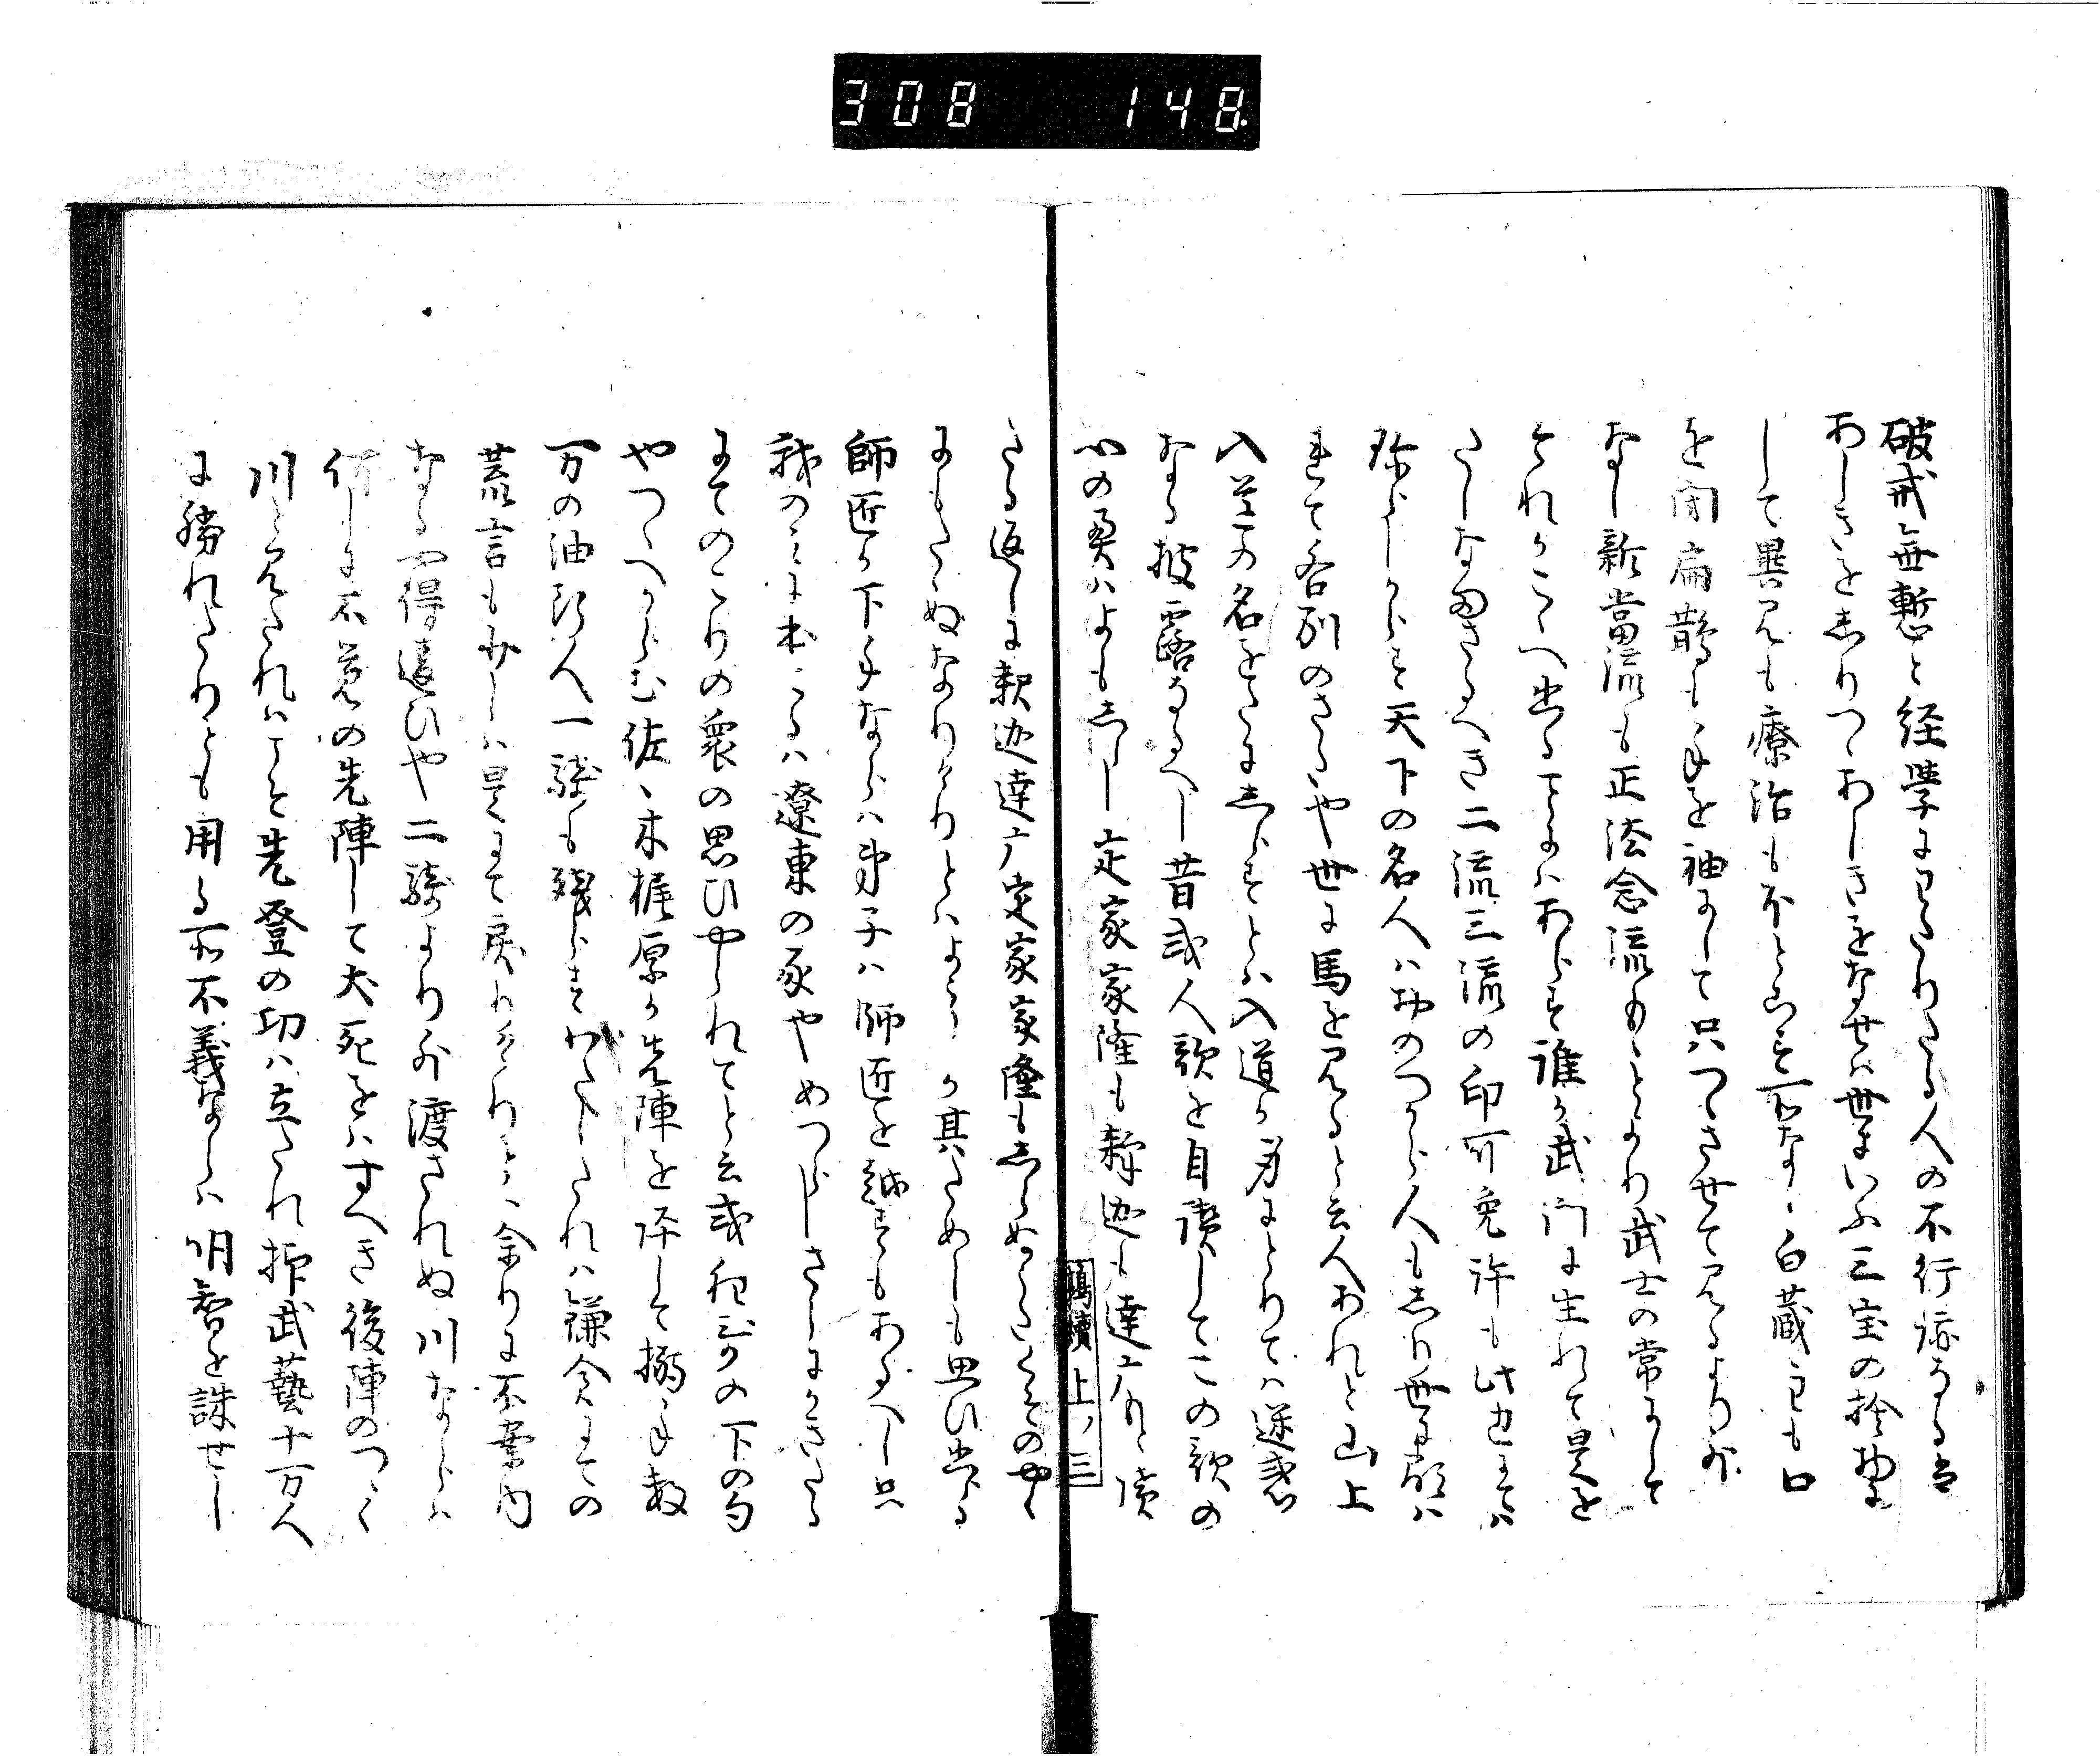 308 148
破戒無慙と経学にわたりたる人の不行跡なると
あしきをしりつゝあしきをなせは世にいふ三宝の捨物に
して異見も療治もほとこす所なく白蔵主も口
を閉扁鵲も手を袖にして只つきさせて見るより外
なし新當流も正法念流ももとより武士の常にして
それかこゝへ出ることにはあらす誰か武門に生れて是を
たしなまさるへき二流三流の印可免許も此辺まては
珍らしからす天下の名人はおのつから人もしり世に顕は
れて各別のさたや世に馬を見ると云人あれと山上
入道の名をたにしらすとは入道か身にとりては迷惑
なる披露なるへし昔或人歌を自讃してこの歌の
心の奥はよもしらし定家家隆も釈迦も達广もと読
たる返しに釈迦達广定家家隆もしらぬうたくその
にもたゝぬなりけりとはよみしか其ためしも思ひ出る
師匠か下手ならは弟子は師匠を越すもあるへし只
我のみにほこるは遼東の豕やめつらしさしにかきたる
まてのこりの衆の思ひやられてと云或 の下の句
やつゝへからむ佐々木梶原か先陣を評して搦手数
万の油断人一騎も残らすわたしたれは鎌倉まての
荒言も少しは是まて戻りけれとも余りに不案内
なる心得違ひや二騎より外渡されぬ川ならは
何しに不覚の先陣して犬死をはすへき後陣のつゝく
川と見たれはこそ先登の功は立たれ抑武藝十万人
に勝れたりとも用る所不義ならは明智を誅せし
鶉衣續 上ノ三